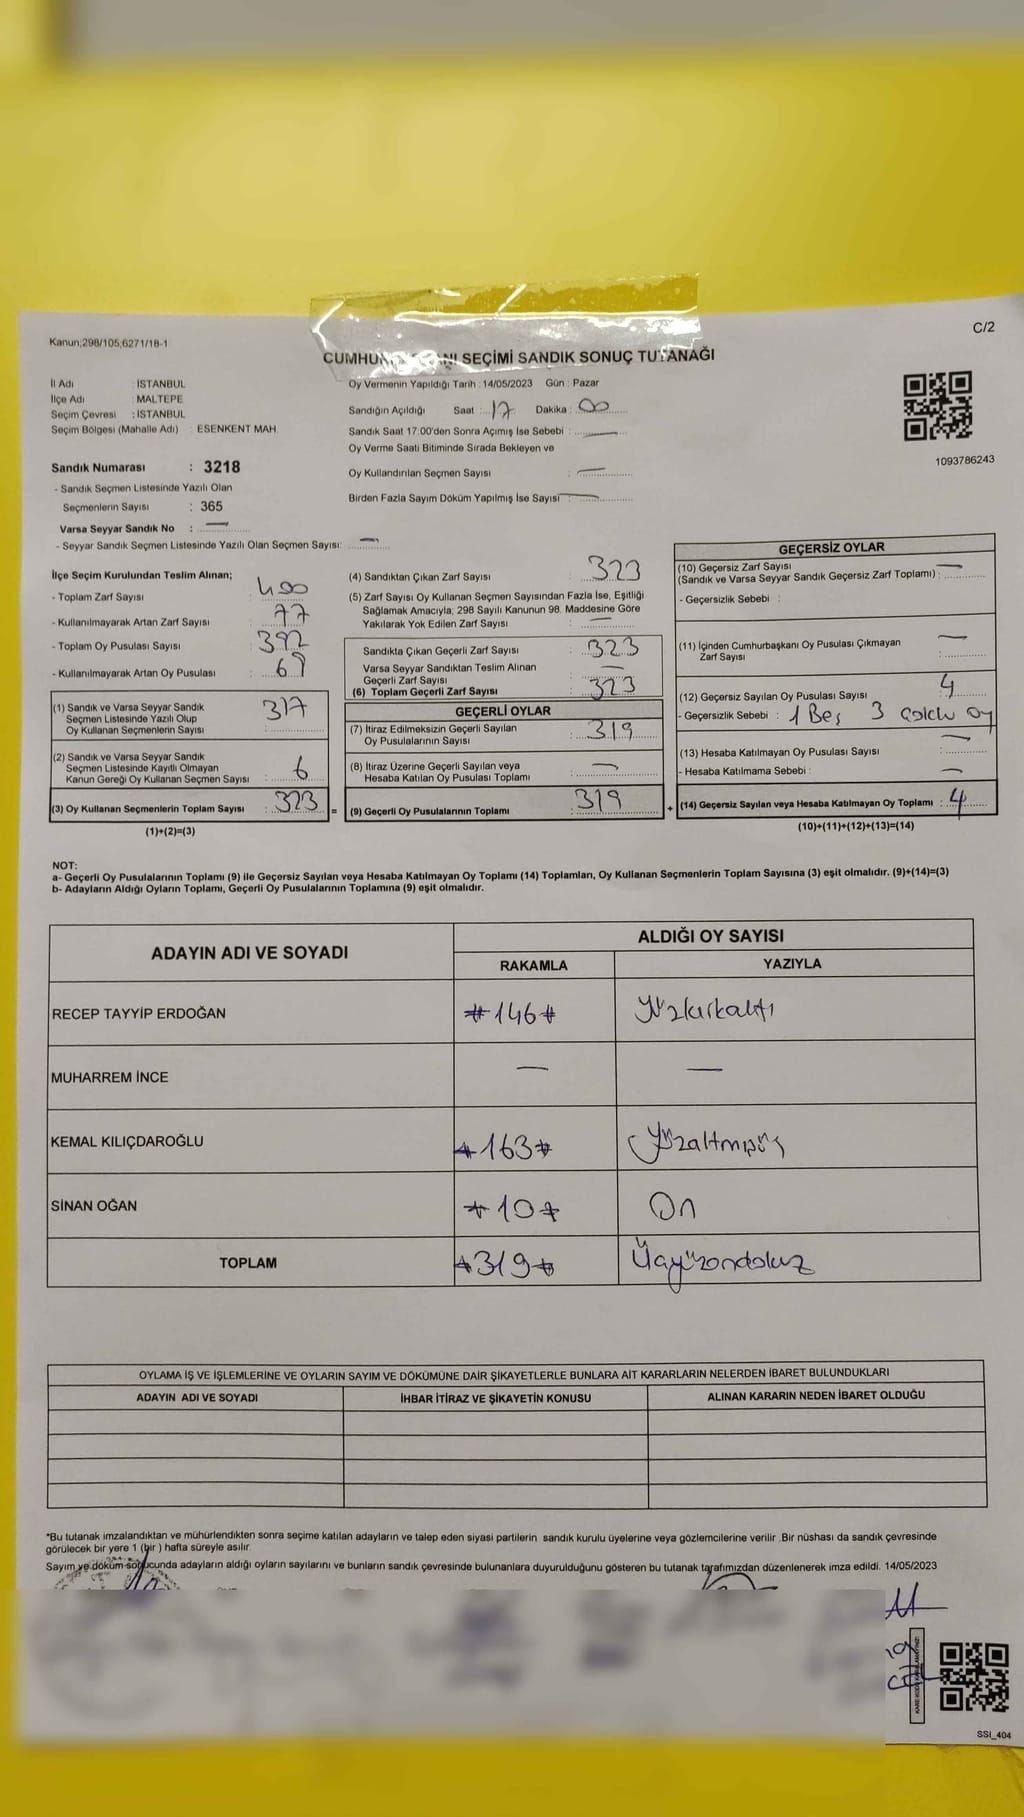 C/2
Kanun;298/105,6271/18-1
CUMHU SEÇİMİ SANDIK SONUÇ TUTANAĞI
İl Adı : İSTANBUL
İlçe Adı : MALTEPE
Seçim Çevresi : İSTANBUL
Seçim Bölgesi (Mahalle Adı) : ESENKENT MAH.
Oy Vermenin Yapıldığı Tarih : 14/05/2023 Gün : Pazar
Sandığın Açıldığı Saat : 17 Dakika : 00
Sandık Saat 17:00'den Sonra Açımış İse Sebebi : —
Oy Verme Saati Bitiminde Sırada Bekleyen ve
Oy Kullandırılan Seçmen Sayısı : —
Birden Fazla Sayım Döküm Yapılmış İse Sayısı : —
1093786243
Sandık Numarası : 3218
- Sandık Seçmen Listesinde Yazılı Olan
Seçmenlerin Sayısı : 365
Varsa Seyyar Sandık No : —
- Seyyar Sandık Seçmen Listesinde Yazılı Olan Seçmen Sayısı: —
İlçe Seçim Kurulundan Teslim Alınan;
- Toplam Zarf Sayısı : 400
- Kullanılmayarak Artan Zarf Sayısı : 77
- Toplam Oy Pusulası Sayısı : 392
- Kullanılmayarak Artan Oy Pusulası : 69
(1) Sandık ve Varsa Seyyar Sandık
Seçmen Listesinde Yazılı Olup
Oy Kullanan Seçmenlerin Sayısı : 317
(2) Sandık ve Varsa Seyyar Sandık
Seçmen Listesinde Kayıtlı Olmayan
Kanun Gereği Oy Kullanan Seçmen Sayısı : 6
(3) Oy Kullanan Seçmenlerin Toplam Sayısı : 323 =
(1)+(2)=(3)
(4) Sandıktan Çıkan Zarf Sayısı : 323
(5) Zarf Sayısı Oy Kullanan Seçmen Sayısından Fazla İse, Eşitliği
Sağlamak Amacıyla; 298 Sayılı Kanunun 98. Maddesine Göre
Yakılarak Yok Edilen Zarf Sayısı : —
Sandıkta Çıkan Geçerli Zarf Sayısı : 323
Varsa Seyyar Sandıktan Teslim Alınan
Geçerli Zarf Sayısı : —
(6) Toplam Geçerli Zarf Sayısı : 323
GEÇERLİ OYLAR
(7) İtiraz Edilmeksizin Geçerli Sayılan
Oy Pusulalarının Sayısı : 319
(8) İtiraz Üzerine Geçerli Sayılan veya
Hesaba Katılan Oy Pusulası Toplamı : —
(9) Geçerli Oy Pusulalarının Toplamı : 319 +
GEÇERSİZ OYLAR
(10) Geçersiz Zarf Sayısı
(Sandık ve Varsa Seyyar Sandık Geçersiz Zarf Toplamı) : —
- Geçersizlik Sebebi :
(11) İçinden Cumhurbaşkanı Oy Pusulası Çıkmayan
Zarf Sayısı : —
(12) Geçersiz Sayılan Oy Pusulası Sayısı : 4
- Geçersizlik Sebebi : 1 Boş 3 çoklu oy
(13) Hesaba Katılmayan Oy Pusulası Sayısı : —
- Hesaba Katılmama Sebebi : —
(14) Geçersiz Sayılan veya Hesaba Katılmayan Oy Toplamı : 4
(10)+(11)+(12)+(13)=(14)
NOT:
a- Geçerli Oy Pusulalarının Toplamı (9) ile Geçersiz Sayılan veya Hesaba Katılmayan Oy Toplamı (14) Toplamları, Oy Kullanan Seçmenlerin Toplam Sayısına (3) eşit olmalıdır. (9)+(14)=(3)
b- Adayların Aldığı Oyların Toplamı, Geçerli Oy Pusulalarının Toplamına (9) eşit olmalıdır.
ADAYIN ADI VE SOYADI ALDIĞI OY SAYISI
RAKAMLA YAZIYLA
RECEP TAYYİP ERDOĞAN #146# Yüzkırkaltı
MUHARREM İNCE — —
KEMAL KILIÇDAROĞLU #163# Yüzaltmışüç
SİNAN OĞAN #10# On
TOPLAM #319# Üçyüzondokuz
OYLAMA İŞ VE İŞLEMLERİNE VE OYLARIN SAYIM VE DÖKÜMÜNE DAİR ŞİKAYETLERLE BUNLARA AİT KARARLARIN NELERDEN İBARET BULUNDUKLARI
ADAYIN ADI VE SOYADI İHBAR İTİRAZ VE ŞİKAYETİN KONUSU ALINAN KARARIN NEDEN İBARET OLDUĞU
*Bu tutanak imzalandıktan ve mühürlendikten sonra seçime katılan adayların ve talep eden siyasi partilerin sandık kurulu üyelerine veya gözlemcilerine verilir .Bir nüshası da sandık çevresinde
görülecek bir yere 1 (bir ) hafta süreyle asılır.
Sayım ve döküm sonucunda adayların aldığı oyların sayılarını ve bunların sandık çevresinde bulunanlara duyurulduğunu gösteren bu tutanak tarafımızdan düzenlenerek imza edildi. 14/05/2023
SSI_404